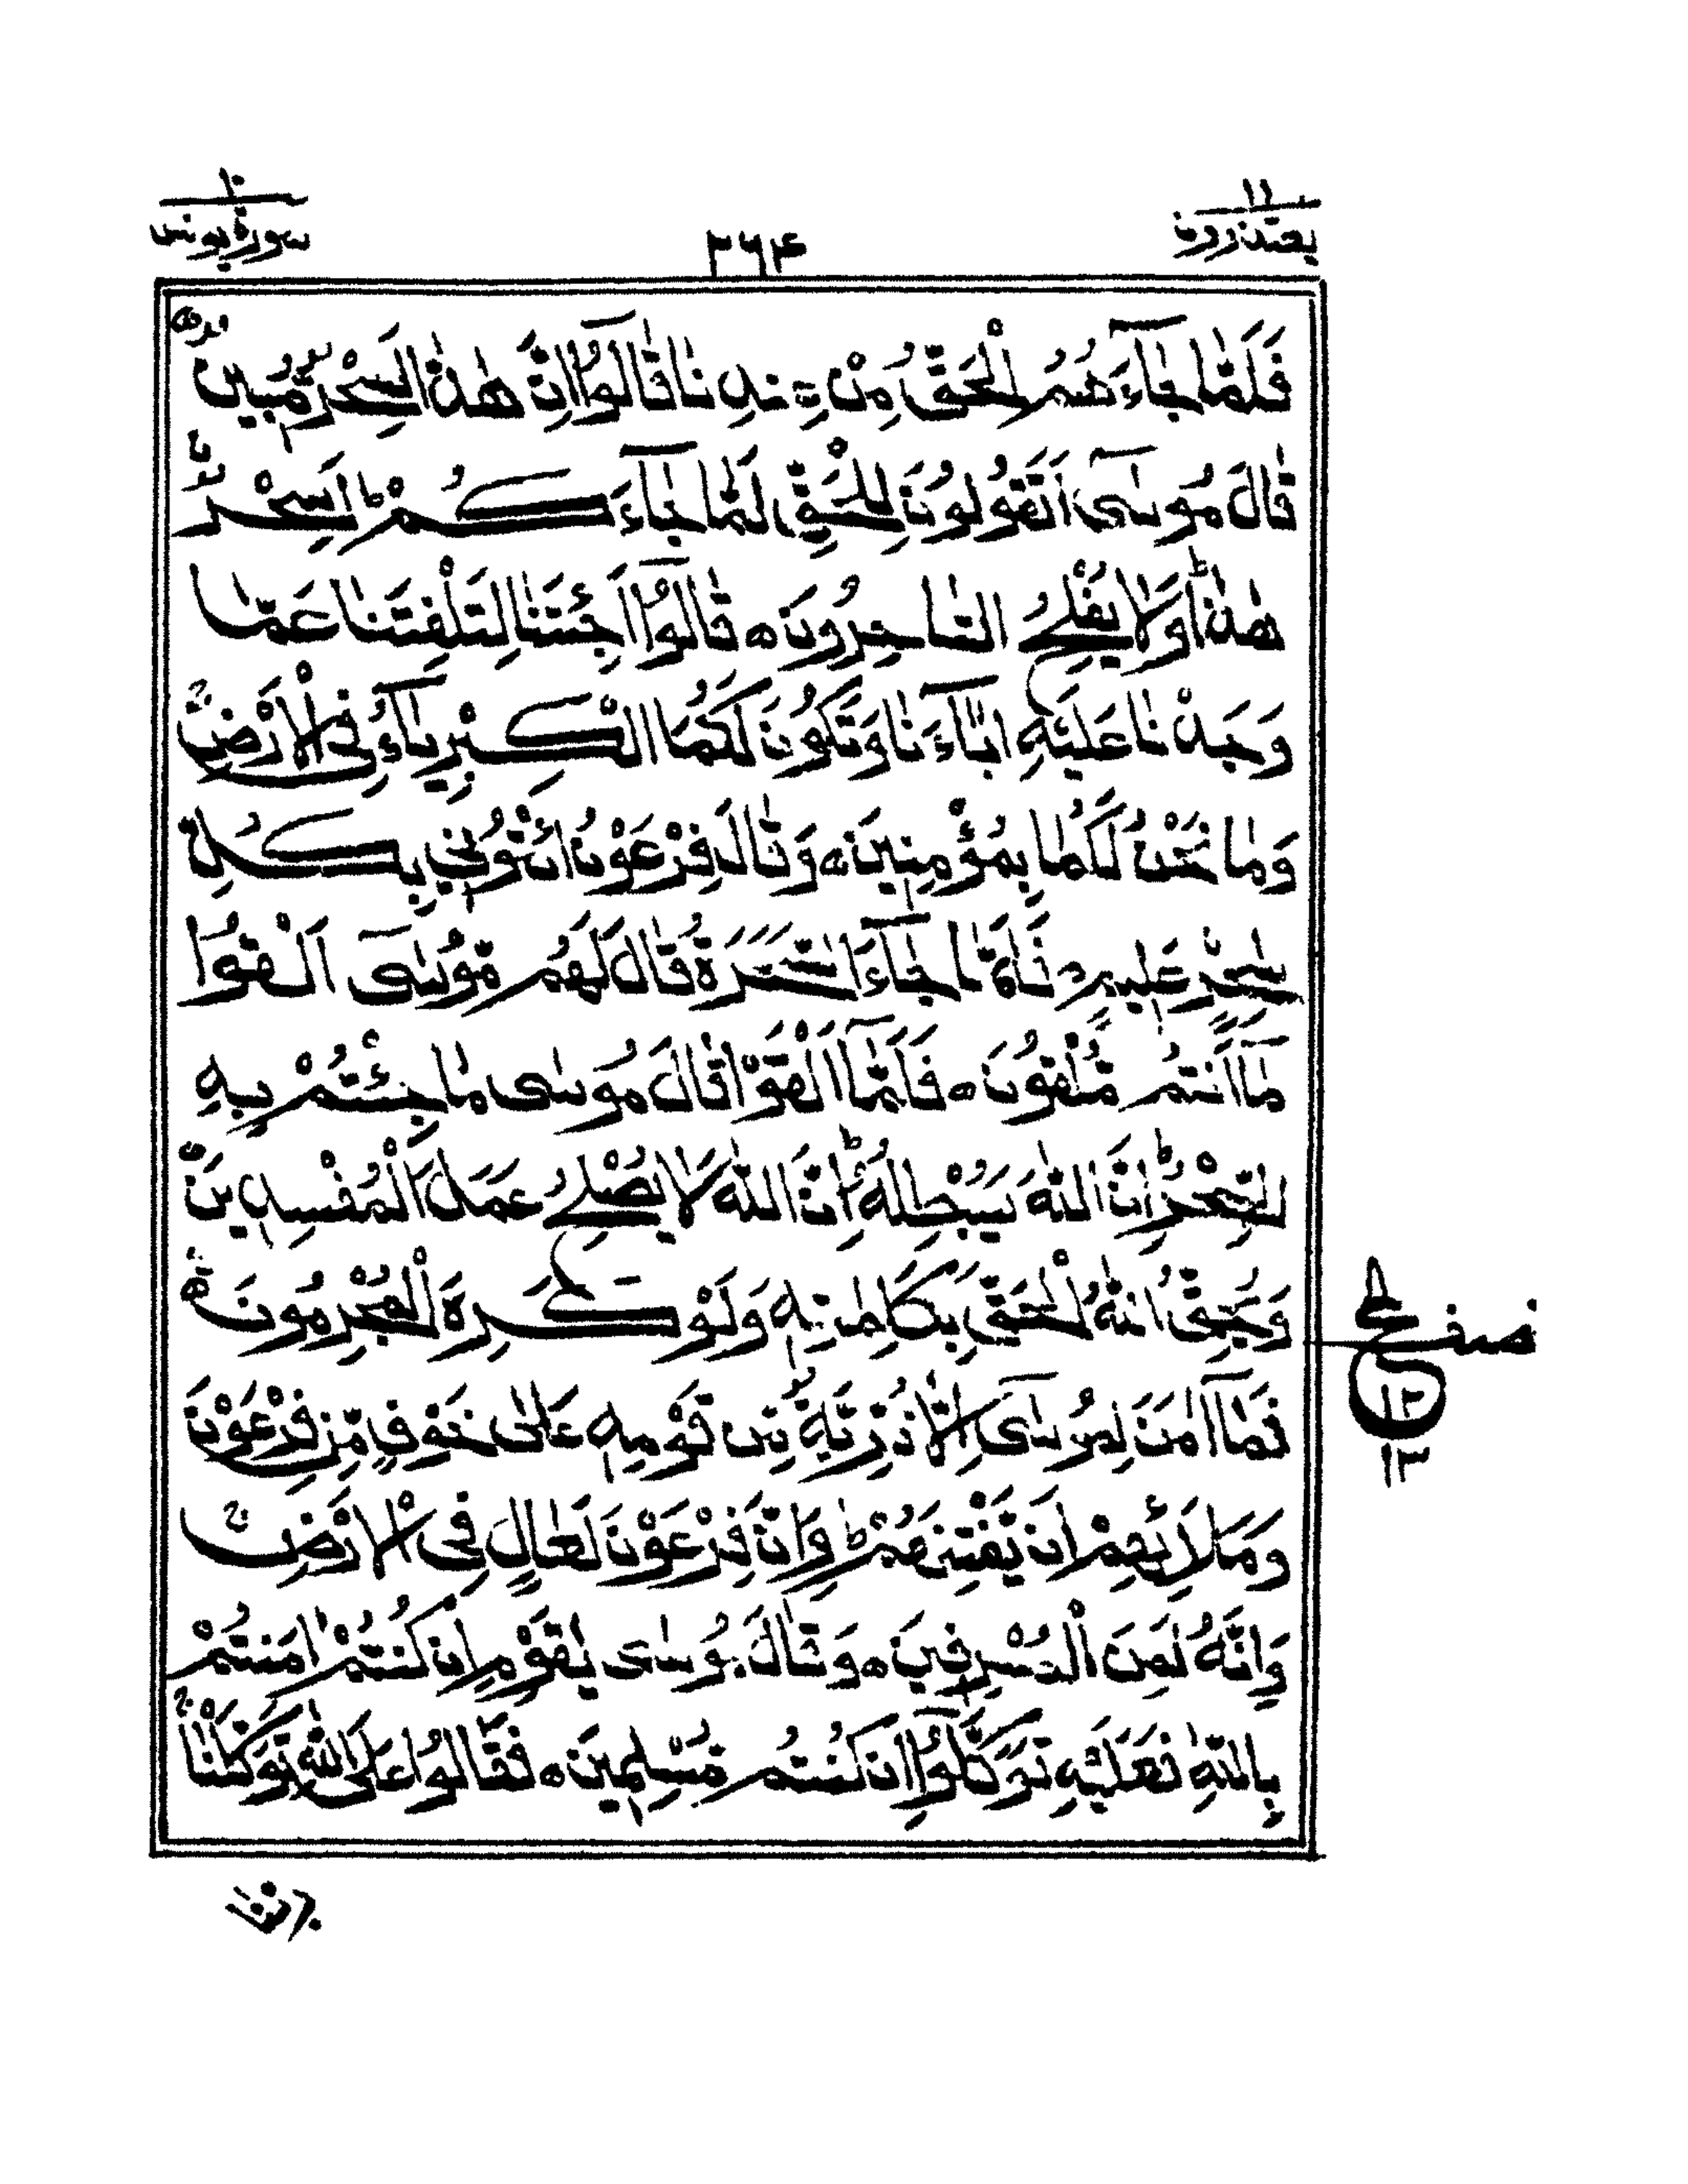 ۱۱
یعتذرون
۲۶۴
۱۰
سورة یونس
فَلَمَّا جَآءَهُمُ الْحَقُّ مِنْ عِنْدِنَا قَالُوْٓا اِنَّ هٰذَا لَسِحْرٌ مُّبِیْنٌ
قَالَ مُوْسٰٓی اَتَقُوْلُوْنَ لِلْحَقِّ لَمَّا جَآءَكُمْ ؕ اَسِحْرٌ
هٰذَا ؕ وَلَا یُفْلِحُ السّٰحِرُوْنَ ۝ قَالُوْٓا اَجِئْتَنَا لِتَلْفِتَنَا عَمَّا
وَجَدْنَا عَلَیْهِ اٰبَآءَنَا وَتَكُوْنَ لَكُمَا الْكِبْرِیَآءُ فِی الْاَرْضِ ؕ
وَمَا نَحْنُ لَكُمَا بِمُؤْمِنِیْنَ ۝ وَقَالَ فِرْعَوْنُ ائْتُوْنِیْ بِكُلِّ
سٰحِرٍ عَلِیْمٍ ۝ فَلَمَّا جَآءَ السَّحَرَةُ قَالَ لَهُمْ مُّوْسٰٓی اَلْقُوْا
مَآ اَنْتُمْ مُّلْقُوْنَ ۝ فَلَمَّآ اَلْقَوْا قَالَ مُوْسٰی مَا جِئْتُمْ بِهِ
السِّحْرُ ؕ اِنَّ اللّٰهَ سَیُبْطِلُهٗ ؕ اِنَّ اللّٰهَ لَا یُصْلِحُ عَمَلَ الْمُفْسِدِیْنَ
وَیُحِقُّ اللّٰهُ الْحَقَّ بِكَلِمٰتِهٖ وَلَوْ كَرِهَ الْمُجْرِمُوْنَ ۝
فَمَآ اٰمَنَ لِمُوْسٰٓی اِلَّا ذُرِّیَّةٌ مِّنْ قَوْمِهٖ عَلٰی خَوْفٍ مِّنْ فِرْعَوْنَ
وَمَلَا۟ئِهِمْ اَنْ یَّفْتِنَهُمْ ؕ وَاِنَّ فِرْعَوْنَ لَعَالٍ فِی الْاَرْضِ ۚ
وَاِنَّهٗ لَمِنَ الْمُسْرِفِیْنَ ۝ وَقَالَ مُوْسٰی یٰقَوْمِ اِنْ كُنْتُمْ اٰمَنْتُمْ
بِاللّٰهِ فَعَلَیْهِ تَوَكَّلُوْٓا اِنْ كُنْتُمْ مُّسْلِمِیْنَ ۝ فَقَالُوْا عَلَی اللّٰهِ تَوَكَّلْنَا ۚ
ع
۱۲
۱۳